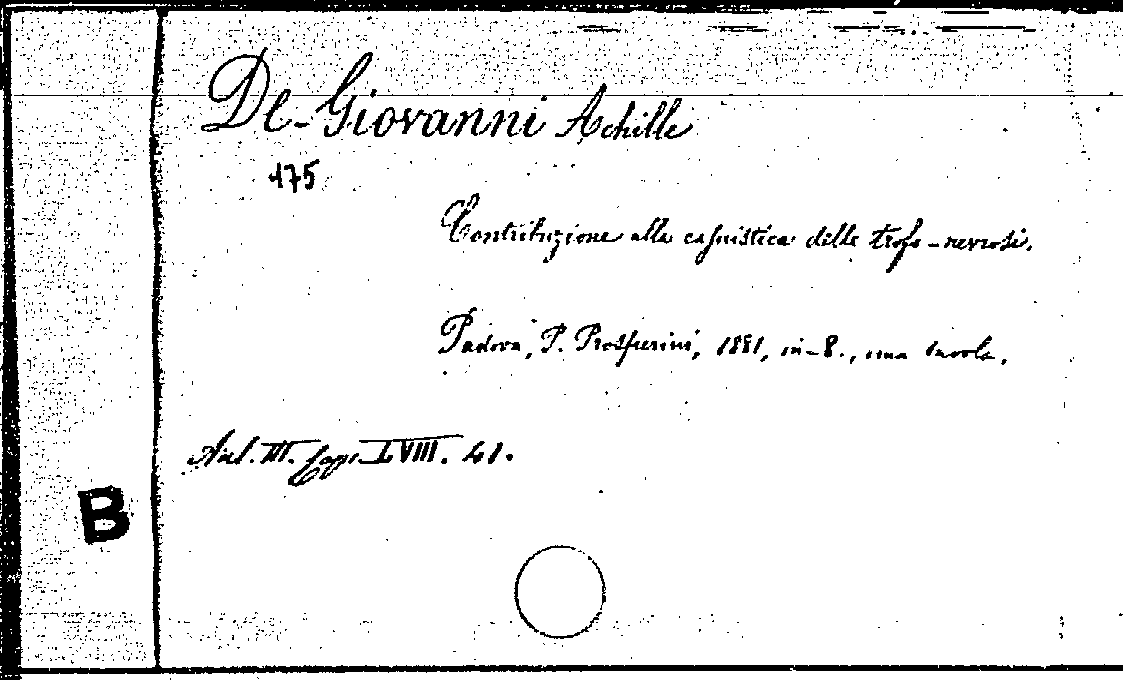 De-Giovanni Achille
175
Contribuzione alla casuistica delle trofo-nevrosi.
Padova, P. Prosperini, 1881, in-8., una tavola.
Aul. III. Capp. LVIII. 41.
B